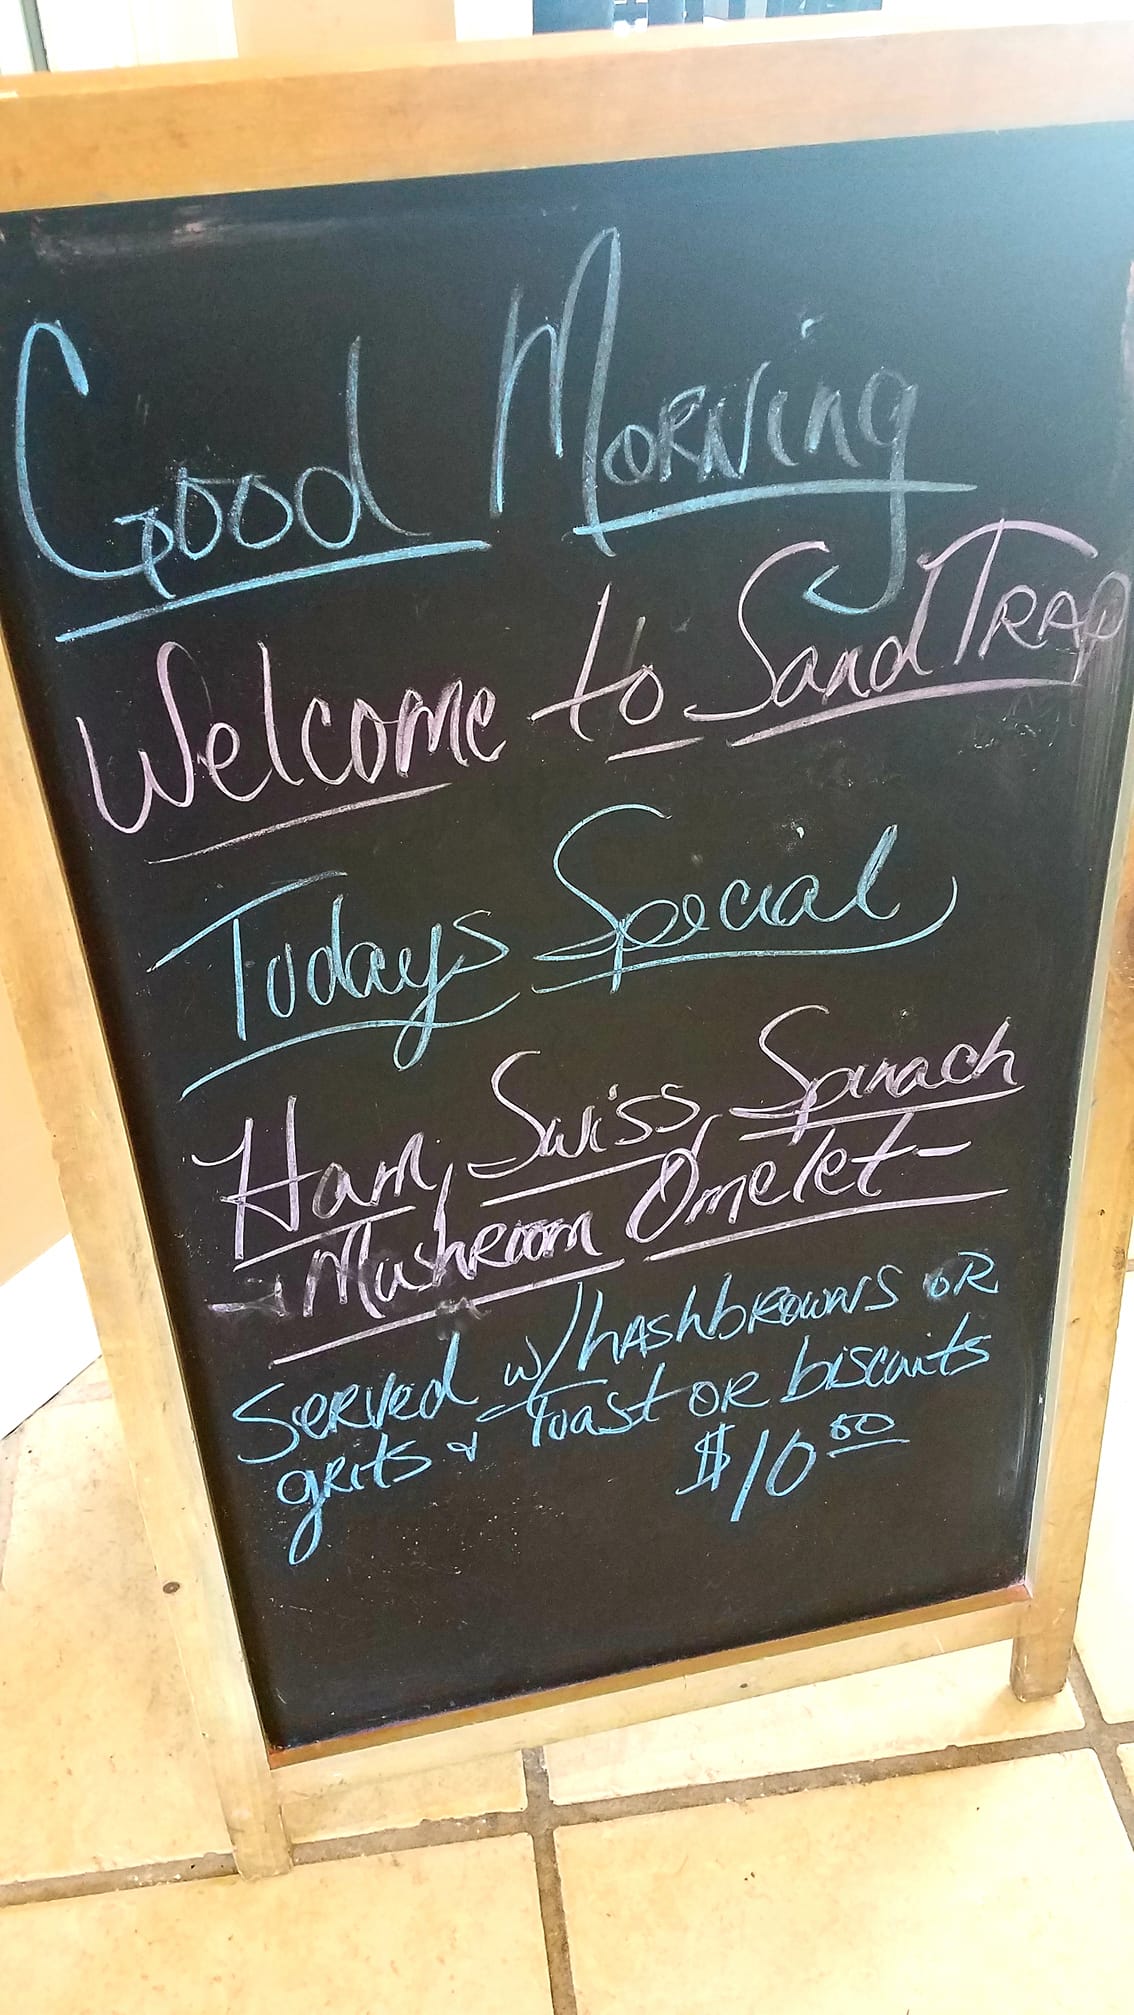 Good Morning
Welcome to Sand Trap
Todays Special
Ham, Swiss, Spinach
Mushroom Omelet-
Served w/hashbrowns or
grits & Toast or biscuits
$10.50